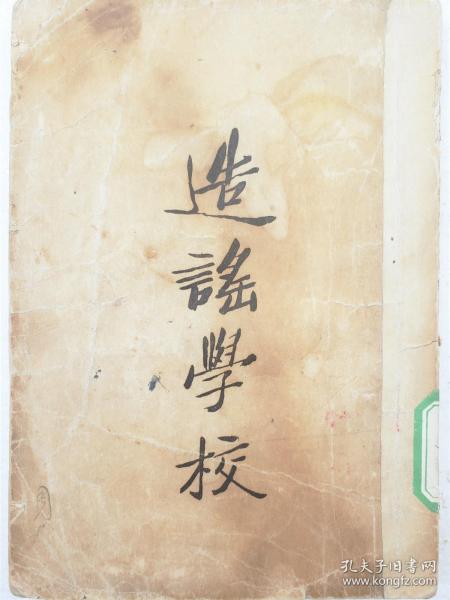 造謠學校
孔夫子旧书网
www.kongfz.com